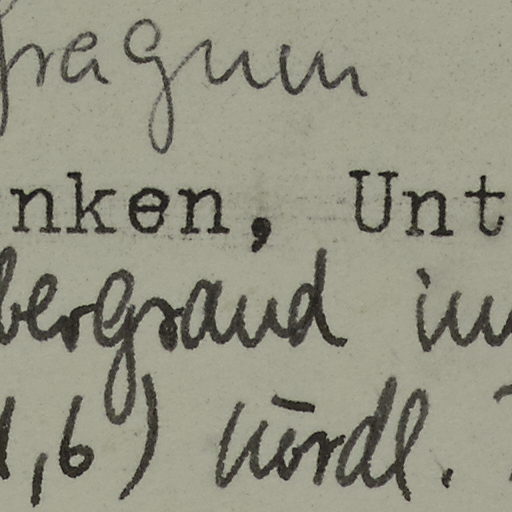 fragum
nken, Unt
bergrand im
1,6) nördl.